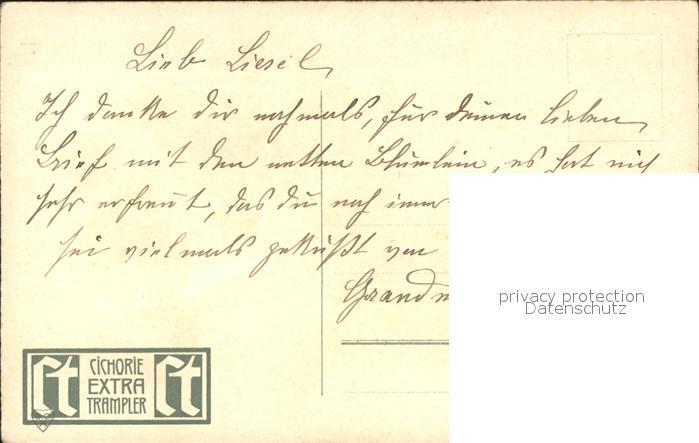 Lieb Liesel,
Ich danke dir nochmals, für deinen lieben
Brief mit den netten Blümlein, es hat mich
sehr erfreut, das du noch immer
sei vielmals geküßt von
Grandm
CICHORIE
EXTRA
TRAMPLER
Ct
Ct
privacy protection
Datenschutz